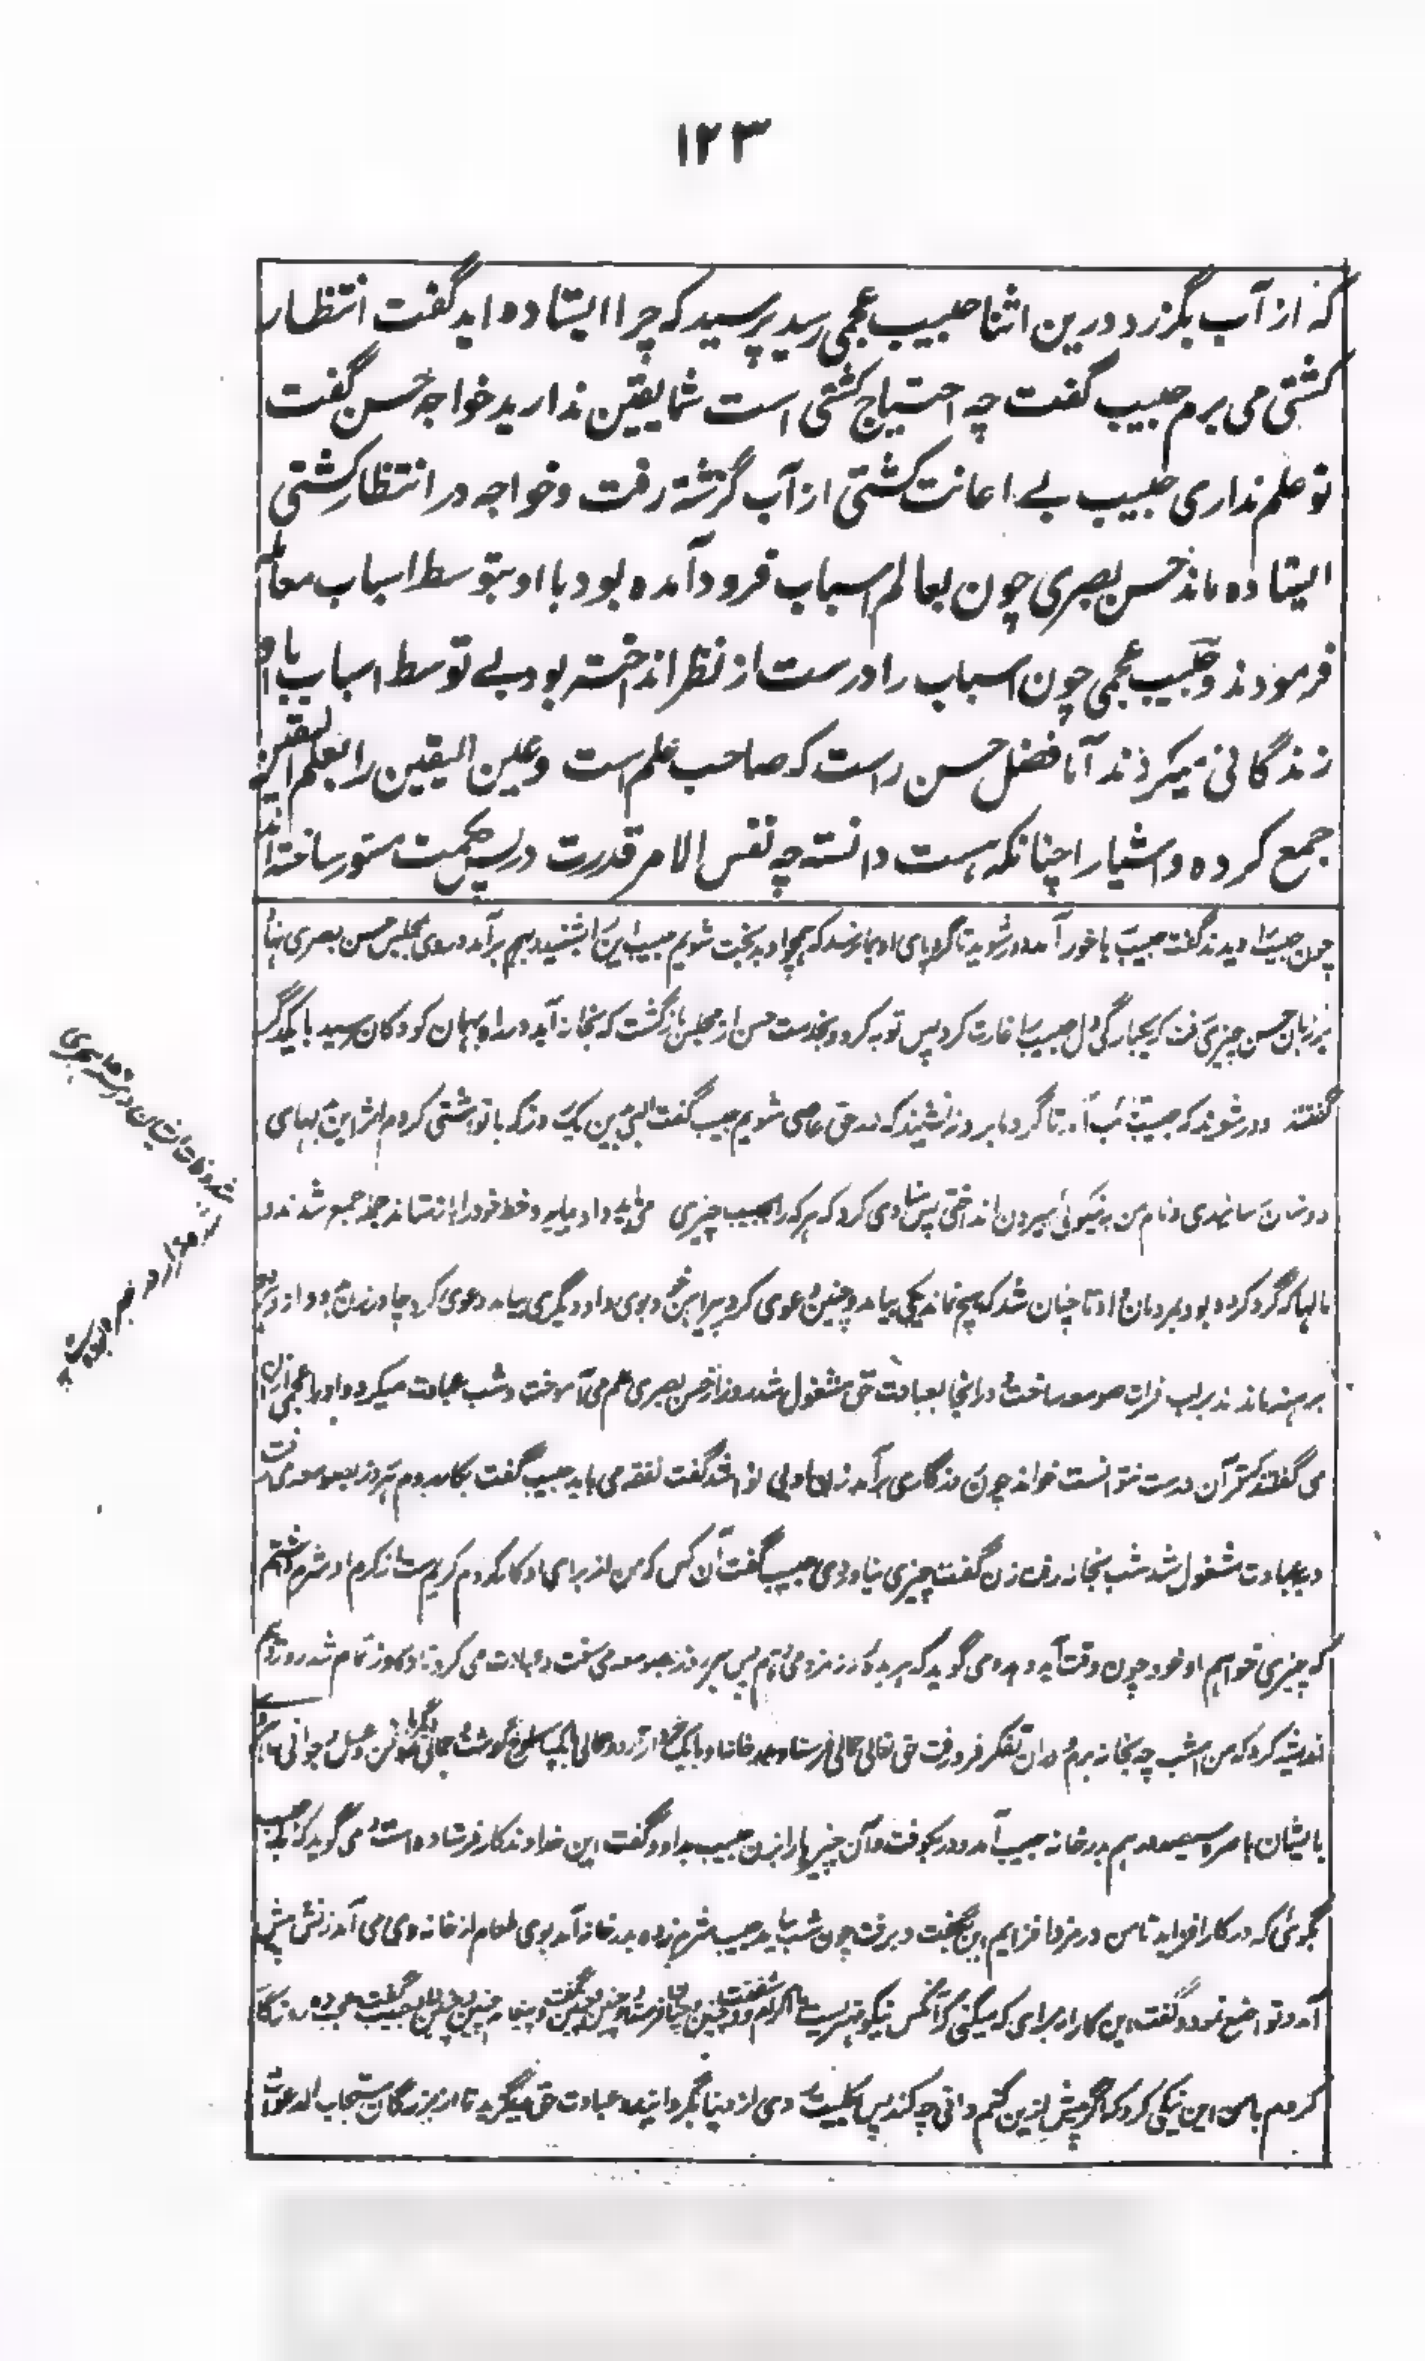 ۱۲۳
که از آب بگزرد درین اثنا حبیب عجمی رسید پرسید که چرا ایستاده اید گفت انتظار
کشتی می برم حبیب گفت چه احتیاج کشتی است شما یقین ندارید خواجه حسن گفت
تو علم نداری حبیب بے اعانت کشتی از آب گزشته رفت و خواجه در انتظار کشتی
ایستاده ماند حسن بصری چون بعالم اسباب فرود آمده بود با او بتوسط اسباب معامله
فرمودند و حبیب عجمی چون اسباب را درست از نظر انداخته بود بے توسط اسباب با او
زندگانی میکردند اما فضل حسن راست که صاحب علم است و عین الیقین را بعلم الیقین
جمع کرده و اشیا را چنانکه هست دانسته چه نفس الامر قدرت در پس حکمت مستور ساخته اند
چون حبیب را دیدند گفتند حبیب با خور آمد دور شوید تا گرد پای او بما نرسد که همچو او بدبخت شویم حبیب این را بشنید بهم برآمد و روی بمجلس حسن بصری نهاد
بر زبان حسن چیزی رفت که یکبارگی دل حبیب را غارت کرد پس توبه کرد و بخدمت حسن از مجلس بازگشت که بخانه آید در راه بهمان کودکان رسید با یکدگر
گفتند دور شوید که حبیب تائب آمد تا گرد ما برو ننشیند که در حق عاصی شویم حبیب گفت الهی بین یک روز که با تو آشتی کردم اثر این بدلهای
دوستان رسانیدی و نام من به نیکوئی بیرون انداختی پس منادی کرد که هر که را بحبیب چیزی می باید داد بیاید و خط خود را باز ستاند جمله جمع شدند و
مالها که گرد کرده بود بمردمان داد تا چنان شد که هیچ نماند یکی بیامد و چنین دعوی کرد پیراهن خود بوی داد و دیگری بیامد دعوی کرد چادر زن بدو داد و
برهنه ماندند بر لب فرات صومعه ساخت و در آنجا بعبادت حق مشغول شد روز از حسن بصری علم می آموخت و شب عبادت میکرد و او را عجمی ازان
می گفتند که قرآن درست نتوانست خواند چون روزگاری برآمد زن او بی نوا شد گفت نفقه می باید حبیب گفت بکار میروم هر روز بصومعه می رفت
و بعبادت مشغول شد شب بخانه رفت زن گفت چیزی نیاوردی حبیب گفت آن کس که من از برای او کار کردم کریم است از کرم او شرم داشتم
که چیزی خواهم او خود چون وقت آید بدهد می گوید که هر ده روز مزد می دهم پس هر روز بصومعه می رفت و عبادت می کرد تا ده روز تمام شد روز دهم
اندیشه کرد که من امشب چه بخانه برم و دران تفکر فرو رفت حق تعالی حمالی فرستاد بدر خانه او با یک خروار آرد و حمالی با یک مسلوخ گوشت و حمالی دیگر با روغن و عسل و جوانی
با ایشان با صره سیصد درهم بدر خانه حبیب آمد و در بکوفت و آن چیزها را بزن حبیب بداد و گفت این خداوندکار فرستاده است و می گوید که حبیب را
بگوئی که در کار افزاید تا من در مزد افزایم این بگفت و برفت چون شب بیامد حبیب شرم زده بدر خانه آمد بوی طعام از خانه وی می آمد زنش پیش
آمد و تواضع نمود و گفت این کار از برای که میکنی که آنکس نیکو مهتریست
کردم با من این نیکی کرد که اگر بیش ازین کنم دانی چه کند پس بکلیت روی از دنیا بگردانید و عبادت حق میگزید تا از بزرگان مستجاب الدعوات